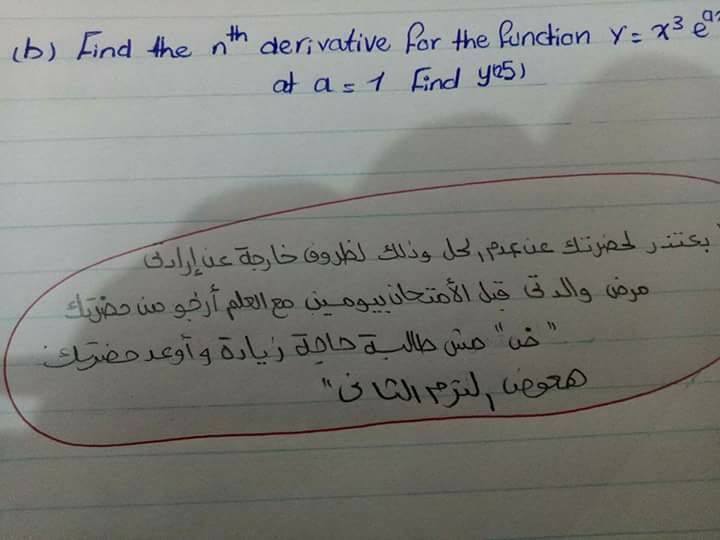 (b) Find the nth derivative for the function Y = x³ e
at a = 1 Find y(25)
بعتذر لحضرتك عن عدم الحل وذلك لظروف خارجة عن إرادتى
مرض والدتى قبل الأمتحان بيومين مع العلم أرجو من حضرتك
"ض" مش طالبة حاجة زيادة وأوعد حضرتك
هعوض الترم الثانى"